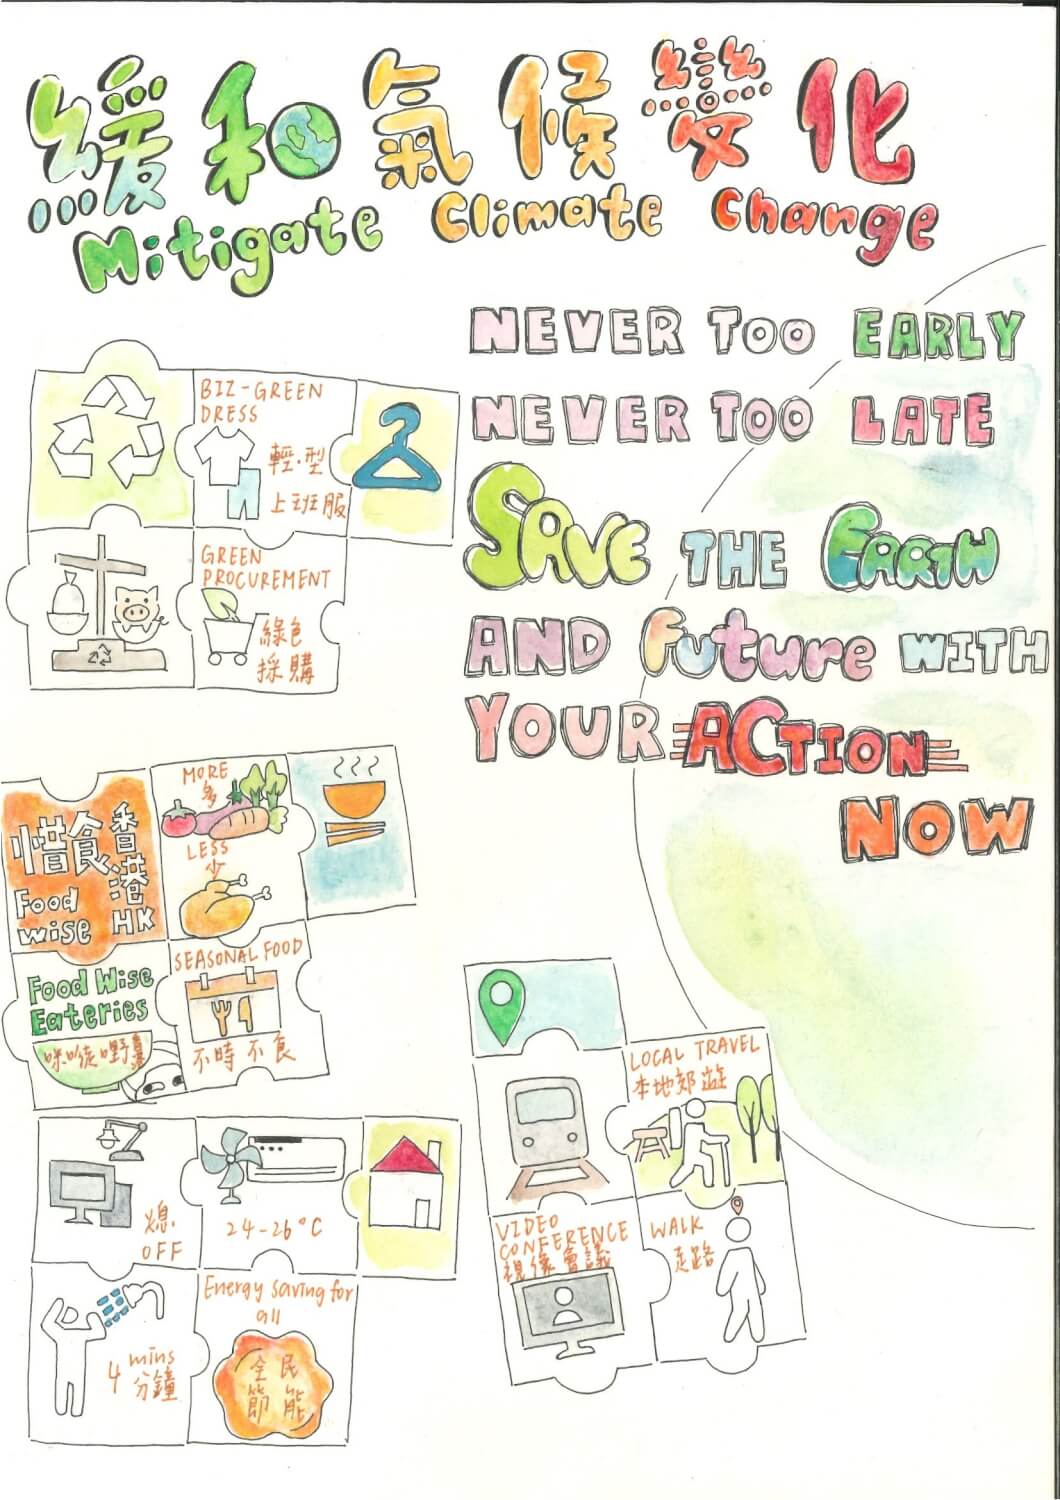 緩和氣候變化
Mitigate Climate Change
NEVER TOO EARLY
NEVER TOO LATE
SAVE THE EARTH
AND Future WITH
YOUR ACTION
NOW
BIZ-GREEN
DRESS
輕.型
上班服
GREEN
PROCUREMENT
綠色
採購
惜食香港
Food
wise HK
MORE
多
LESS
少
Food Wise
Eateries
咪嘥嘢食店
SEASONAL FOOD
不時不食
熄
OFF
24-26°C
4 mins
分鐘
Energy saving for
all
全民
節能
LOCAL TRAVEL
本地郊遊
VIDEO
CONFERENCE
視像會議
WALK
走路